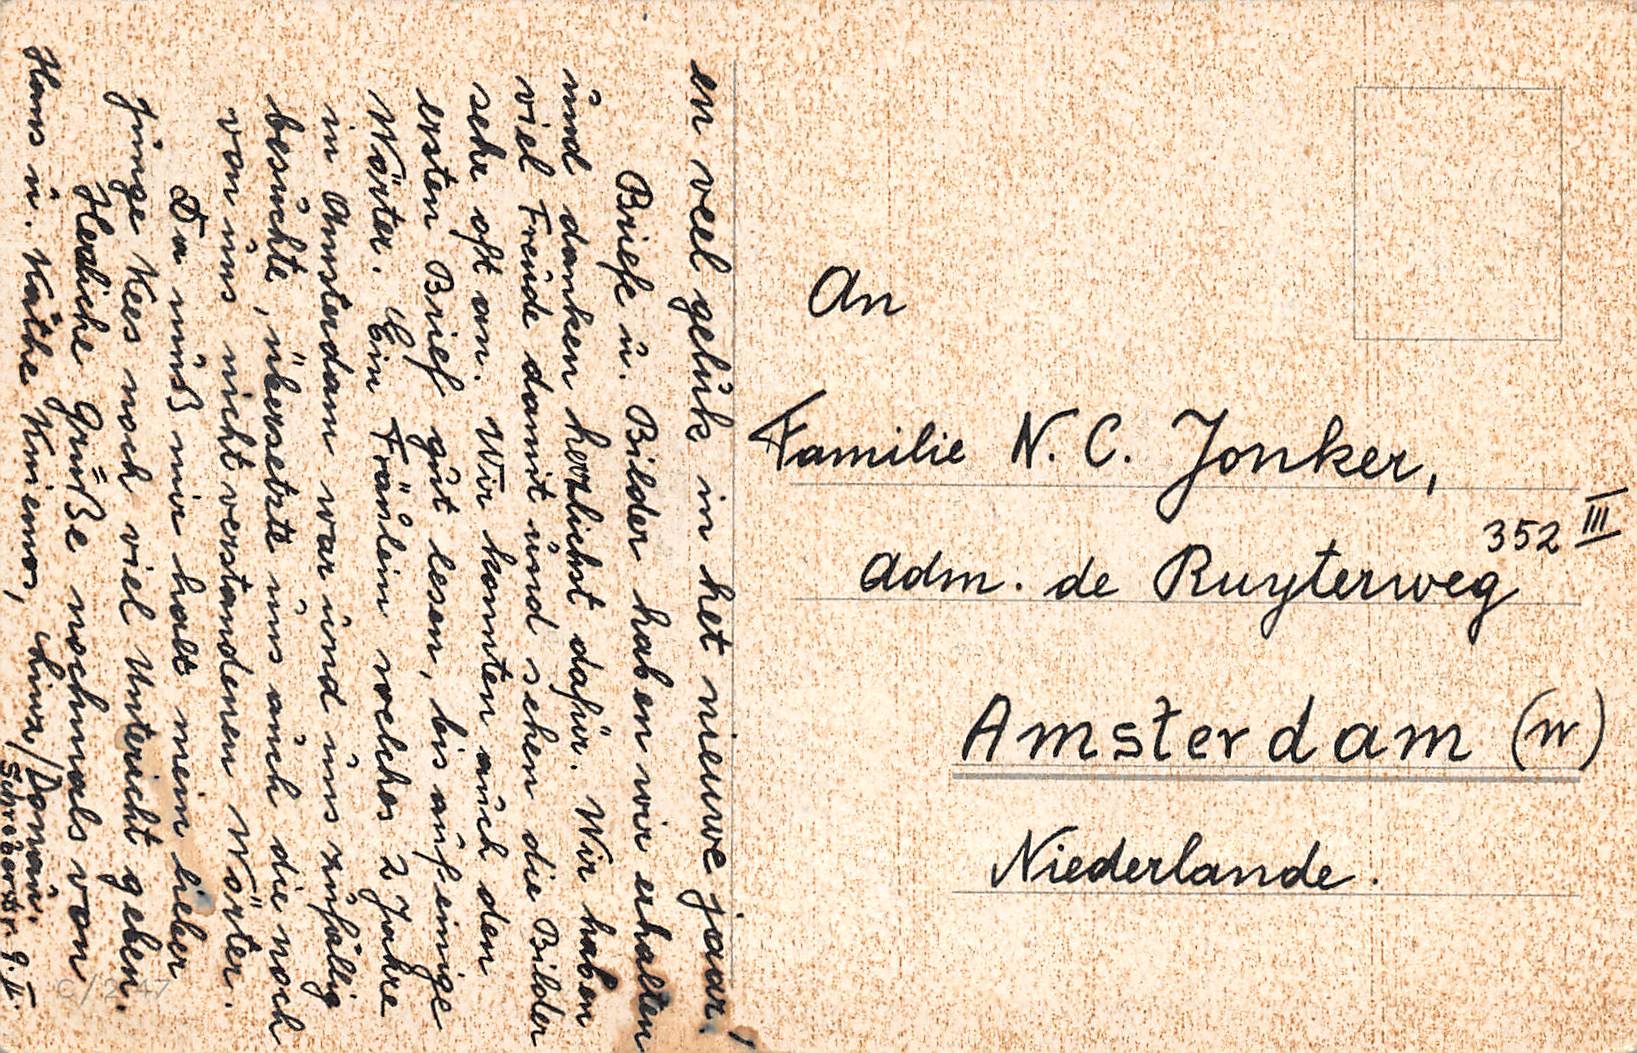 en veel gelük in het nieuwe jaar!
Briefe u. Bilder haben wir erhalten
und danken herzlichst dafür. Wir haben
viel Freude damit und sehen die Bilder
sehr oft an. Wir konnten auch den
ersten Brief gut lesen, bis auf einige
Wörter. Ein Fräulein welches 2 Jahre
in Amsterdam war und uns zufällig
besuchte, übersetzte uns auch die noch
von uns nicht verstandenen Wörter.
Da muß mir halt mein lieber
Junge Kees noch viel Unterricht geben.
Herzliche Grüße nochmals von
Hans u. Käthe Linz/Donau,
I.
An
Familie N. C. Jonker,
352 III
Adm. de Ruyterweg
Amsterdam (W)
Niederlande.